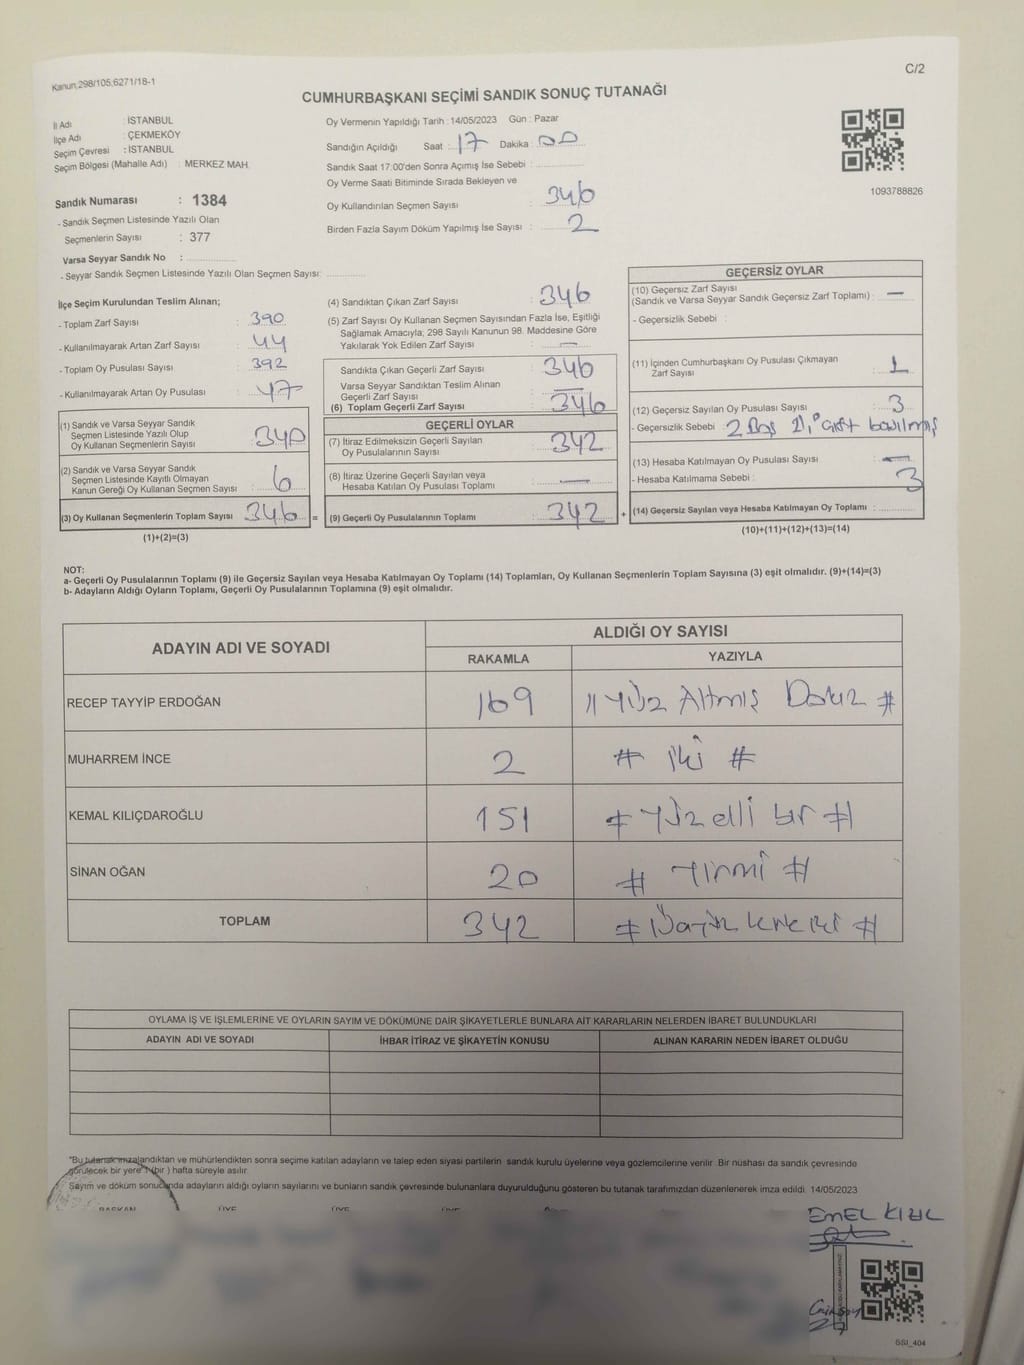 Kanun:298/105;6271/18-1
C/2
CUMHURBAŞKANI SEÇİMİ SANDIK SONUÇ TUTANAĞI
İl Adı : İSTANBUL
İlçe Adı : ÇEKMEKÖY
Seçim Çevresi : İSTANBUL
Seçim Bölgesi (Mahalle Adı) : MERKEZ MAH.
Sandık Numarası : 1384
- Sandık Seçmen Listesinde Yazılı Olan
Seçmenlerin Sayısı : 377
Varsa Seyyar Sandık No :
- Seyyar Sandık Seçmen Listesinde Yazılı Olan Seçmen Sayısı:
Oy Vermenin Yapıldığı Tarih : 14/05/2023 Gün : Pazar
Sandığın Açıldığı Saat : 17 Dakika : 00
Sandık Saat 17:00'den Sonra Açımış İse Sebebi :
Oy Verme Saati Bitiminde Sırada Bekleyen ve
Oy Kullandırılan Seçmen Sayısı : 346
Birden Fazla Sayım Döküm Yapılmış İse Sayısı : 2
1093788826
İlçe Seçim Kurulundan Teslim Alınan;
- Toplam Zarf Sayısı : 390
- Kullanılmayarak Artan Zarf Sayısı : 44
- Toplam Oy Pusulası Sayısı : 392
- Kullanılmayarak Artan Oy Pusulası : 47
(1) Sandık ve Varsa Seyyar Sandık
Seçmen Listesinde Yazılı Olup
Oy Kullanan Seçmenlerin Sayısı : 340
(2) Sandık ve Varsa Seyyar Sandık
Seçmen Listesinde Kayıtlı Olmayan
Kanun Gereği Oy Kullanan Seçmen Sayısı : 6
(3) Oy Kullanan Seçmenlerin Toplam Sayısı : 346 =
(1)+(2)=(3)
(4) Sandıktan Çıkan Zarf Sayısı : 346
(5) Zarf Sayısı Oy Kullanan Seçmen Sayısından Fazla İse, Eşitliği
Sağlamak Amacıyla; 298 Sayılı Kanunun 98. Maddesine Göre
Yakılarak Yok Edilen Zarf Sayısı : —
Sandıkta Çıkan Geçerli Zarf Sayısı : 346
Varsa Seyyar Sandıktan Teslim Alınan
Geçerli Zarf Sayısı : —
(6) Toplam Geçerli Zarf Sayısı : 346
GEÇERLİ OYLAR
(7) İtiraz Edilmeksizin Geçerli Sayılan
Oy Pusulalarının Sayısı : 342
(8) İtiraz Üzerine Geçerli Sayılan veya
Hesaba Katılan Oy Pusulası Toplamı : —
(9) Geçerli Oy Pusulalarının Toplamı : 342 +
GEÇERSİZ OYLAR
(10) Geçersiz Zarf Sayısı
(Sandık ve Varsa Seyyar Sandık Geçersiz Zarf Toplamı) : —
- Geçersizlik Sebebi :
(11) İçinden Cumhurbaşkanı Oy Pusulası Çıkmayan
Zarf Sayısı : 1
(12) Geçersiz Sayılan Oy Pusulası Sayısı : 3
- Geçersizlik Sebebi : 2 Boş 1, çift basılmış
(13) Hesaba Katılmayan Oy Pusulası Sayısı : —
- Hesaba Katılmama Sebebi : 3
(14) Geçersiz Sayılan veya Hesaba Katılmayan Oy Toplamı :
(10)+(11)+(12)+(13)=(14)
NOT:
a- Geçerli Oy Pusulalarının Toplamı (9) ile Geçersiz Sayılan veya Hesaba Katılmayan Oy Toplamı (14) Toplamları, Oy Kullanan Seçmenlerin Toplam Sayısına (3) eşit olmalıdır. (9)+(14)=(3)
b- Adayların Aldığı Oyların Toplamı, Geçerli Oy Pusulalarının Toplamına (9) eşit olmalıdır.
ADAYIN ADI VE SOYADI ALDIĞI OY SAYISI
RAKAMLA YAZIYLA
RECEP TAYYİP ERDOĞAN 169 // Yüz Altmış Dokuz #
MUHARREM İNCE 2 # iki #
KEMAL KILIÇDAROĞLU 151 # Yüz elli bir #
SİNAN OĞAN 20 # Yirmi #
TOPLAM 342 # #
OYLAMA İŞ VE İŞLEMLERİNE VE OYLARIN SAYIM VE DÖKÜMÜNE DAİR ŞİKAYETLERLE BUNLARA AİT KARARLARIN NELERDEN İBARET BULUNDUKLARI
ADAYIN ADI VE SOYADI İHBAR İTİRAZ VE ŞİKAYETİN KONUSU ALINAN KARARIN NEDEN İBARET OLDUĞU
"Bu tutanak imzalandıktan ve mühürlendikten sonra seçime katılan adayların ve talep eden siyasi partilerin sandık kurulu üyelerine veya gözlemcilerine verilir. Bir nüshası da sandık çevresinde
görülecek bir yere 1 (bir ) hafta süreyle asılır.
Sayım ve döküm sonucunda adayların aldığı oyların sayılarını ve bunların sandık çevresinde bulunanlara duyurulduğunu gösteren bu tutanak tarafımızdan düzenlenerek imza edildi. 14/05/2023
BAŞKAN ÜYE ÜYE ÜYE
EMEL KIZIL
SSI_404